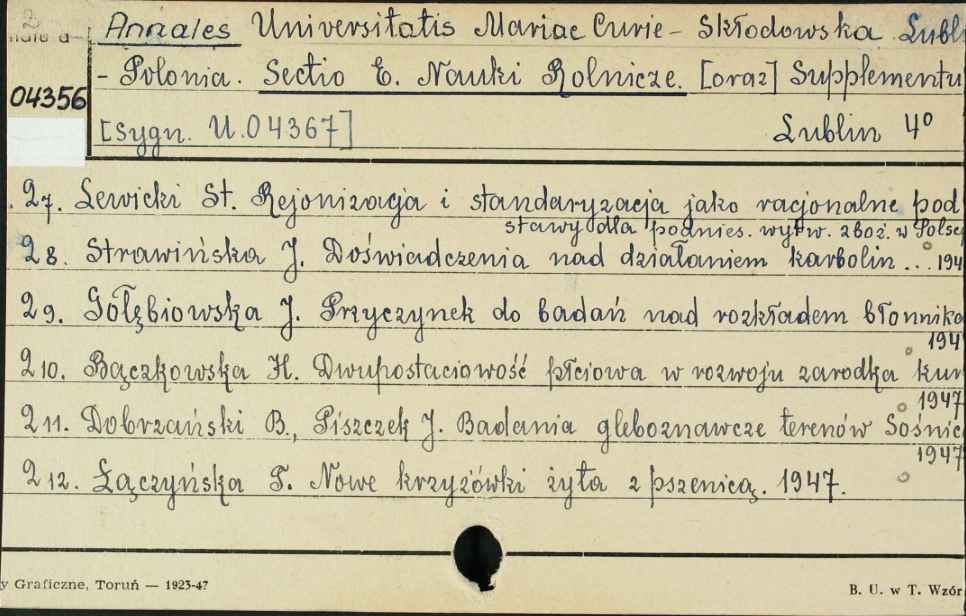 Annales Universitatis Mariae Curie - Skłodowska Lubli
- Polonia. Sectio E. Nauki Rolnicze. [oraz] Supplementu
04356
[sygn. U.04367] Lublin 4°
27. Lewicki St. Rejonizacja i standaryzacja jako racjonalne pod
stawy dla podnies. wytw. zboż. w Polsce
28. Strawińska J. Doświadczenia nad działaniem karbolin... 194
29. Gołębiowska J. Przyczynek do badań nad rozkładem błonnika
194
210. Bączkowska H. Dwupostaciowość płciowa w rozwoju zarodka kur
1947
211. Dobrzański B., Piszczek J. Badania gleboznawcze terenów Sośnic
1947
212. Łączyńska F. Nowe krzyżówki żyta z pszenicą. 1947.
y Graficzne, Toruń — 1923-47 B. U. w T. Wzór